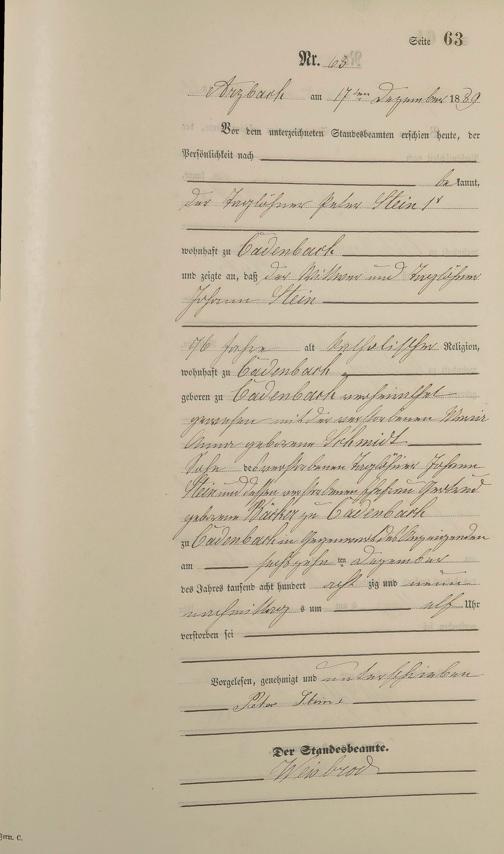 Seite 63
Nr. 63
Arzbach am 17ten Dezember 1889
Vor dem unterzeichneten Standesbeamten erschien heute, der
Persönlichkeit nach
be kannt,
der Taglöhner Peter Stein 1r
wohnhaft zu Cadenbach
und zeigte an, daß der Wittwer und Taglöhner
Johann Stein
76 Jahre alt katholischer Religion,
wohnhaft zu Cadenbach
geboren zu Cadenbach verheirathet
gewesen mit der verstorbenen Maria
Anna geborene Schmidt
Sohn des verstorbenen Taglöhner Johann
Stein und dessen verstorbenen Ehefrau Gertrud
geborene Bäcker zu Cadenbach
zu Cadenbach in Gegenwart des Anzeigenden
am sechszehn ten Dezember
des Jahres tausend acht hundert acht zig und neun
nachmittag s um elf Uhr
verstorben sei
Vorgelesen, genehmigt und unterschrieben
Peter Stein
Der Standesbeamte.
Weisbrod
Form. C.